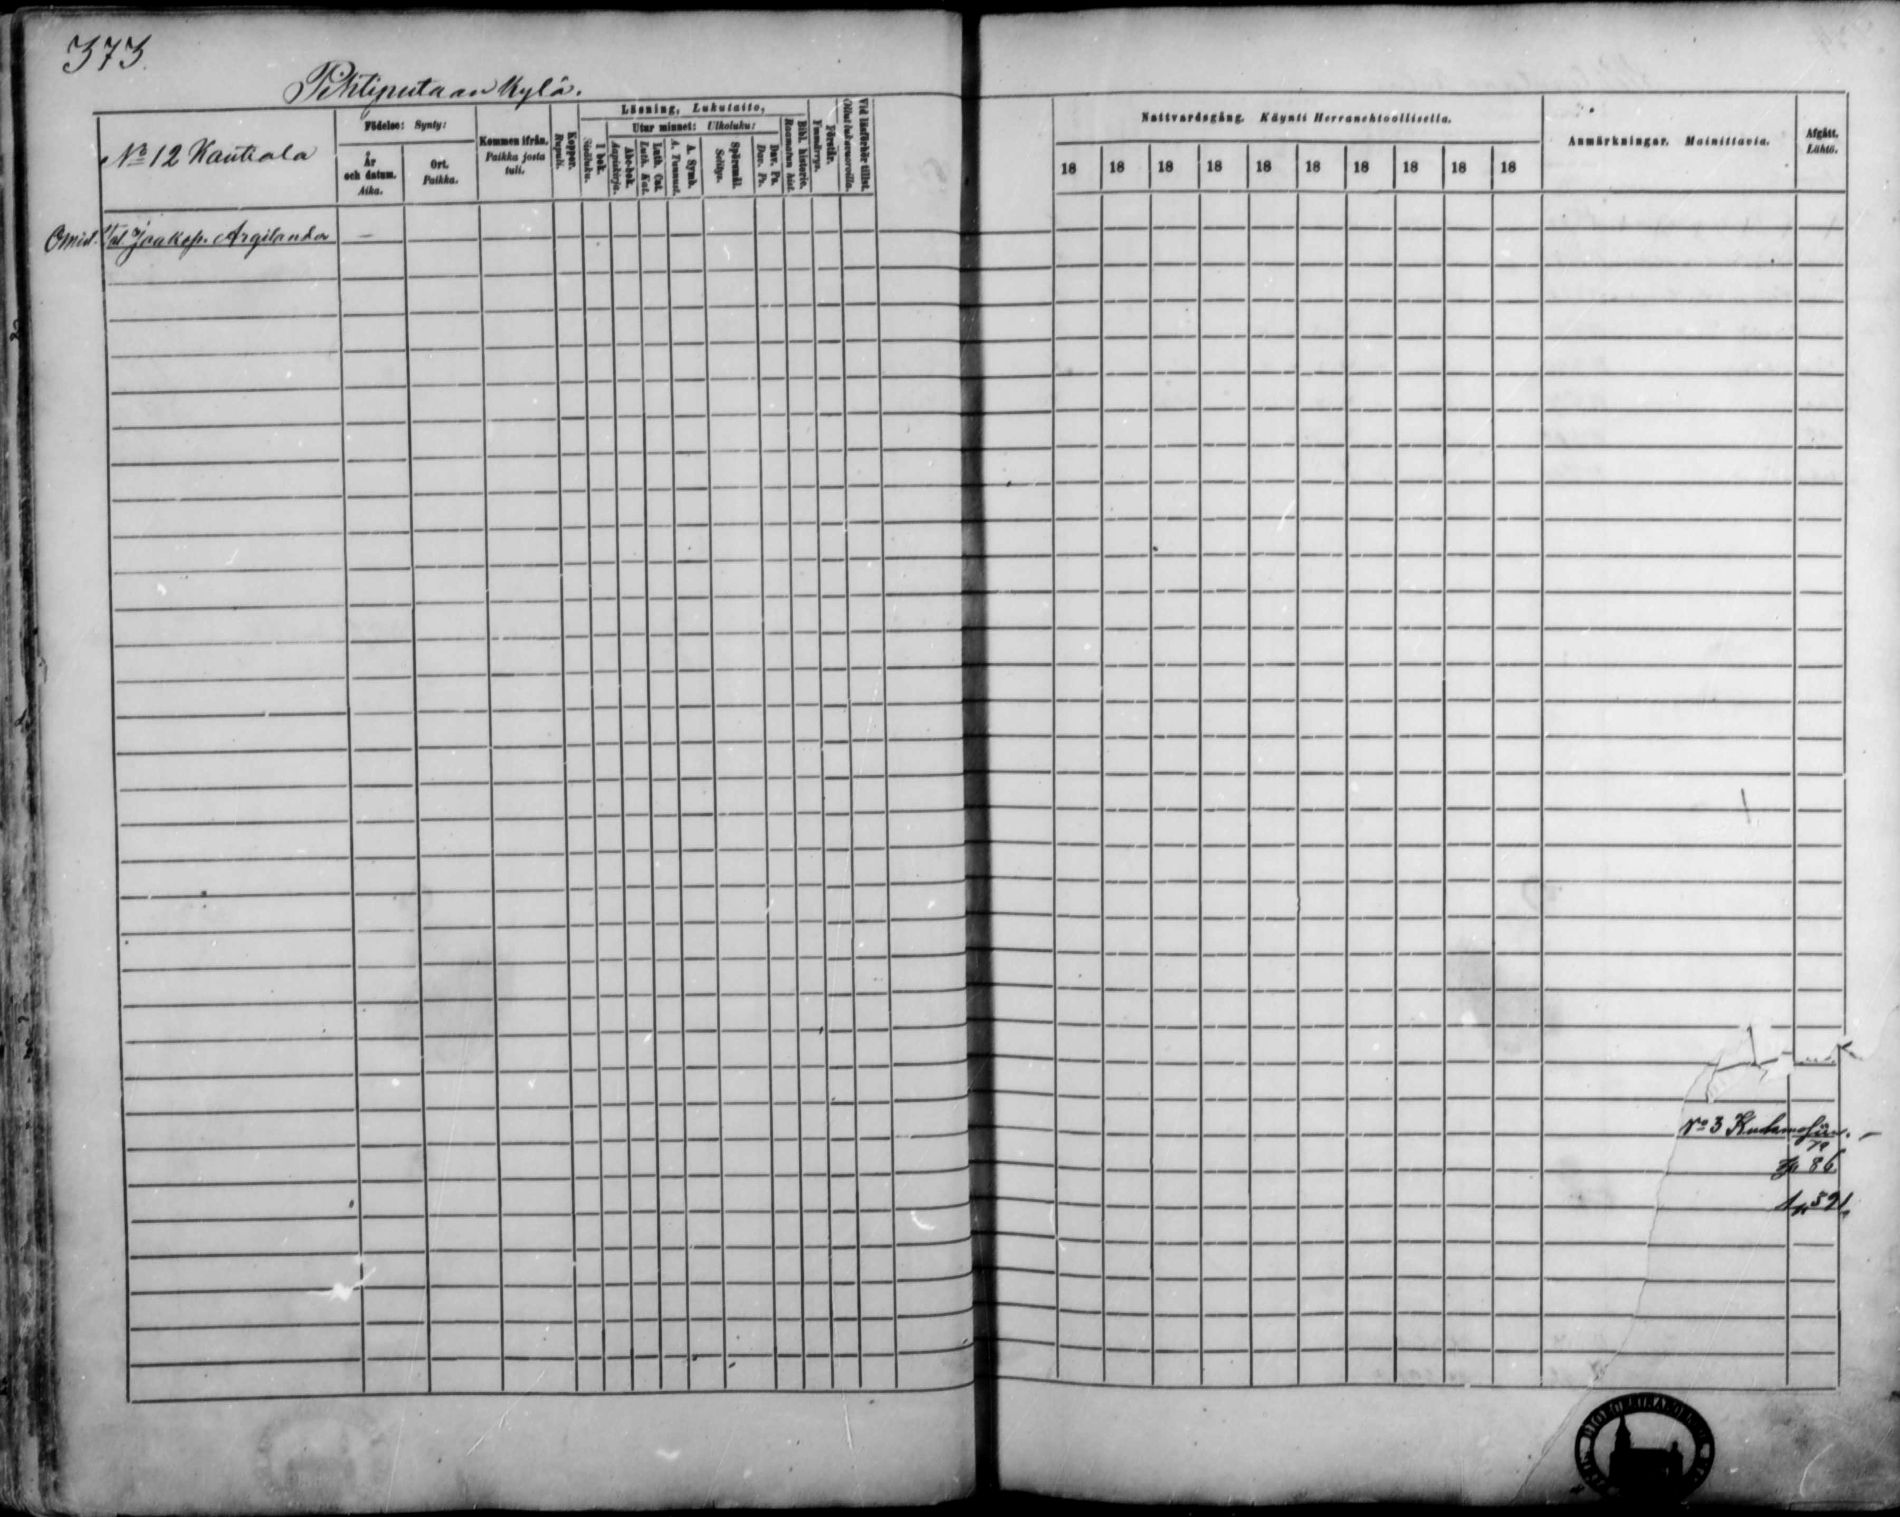 373
Pihtiputaan Kylä.
No 12 Kautiala
Födelse: Synty:
År och datum. Aika.
Ort. Paikka.
Kommen ifrån. Paikka josta tuli.
Koppor. Rupuli.
Läsning, Lukutaito,
I bok. Sisäluku.
Utur minnet: Ulkoluku:
Abc-bok. Aapiskirja.
Luth. Cat. Luth. Kat.
A. Symb. A. Tunnust.
Spörsmål. Selitys.
Dav. Ps. Dav. Ps.
Bibl. historie. Raamatun hist.
Förstår. Ymmärrys.
Vid läsförhör tillst. Ollut lukuvuoroilla.
Nattvardsgång. Käynti Herranehtoollisella.
18 18 18 18 18 18 18 18 18 18
Anmärkningar. Mainittavia.
Afgått. Lähtö.
Omist. Jaakop. Argilander
No 3
86